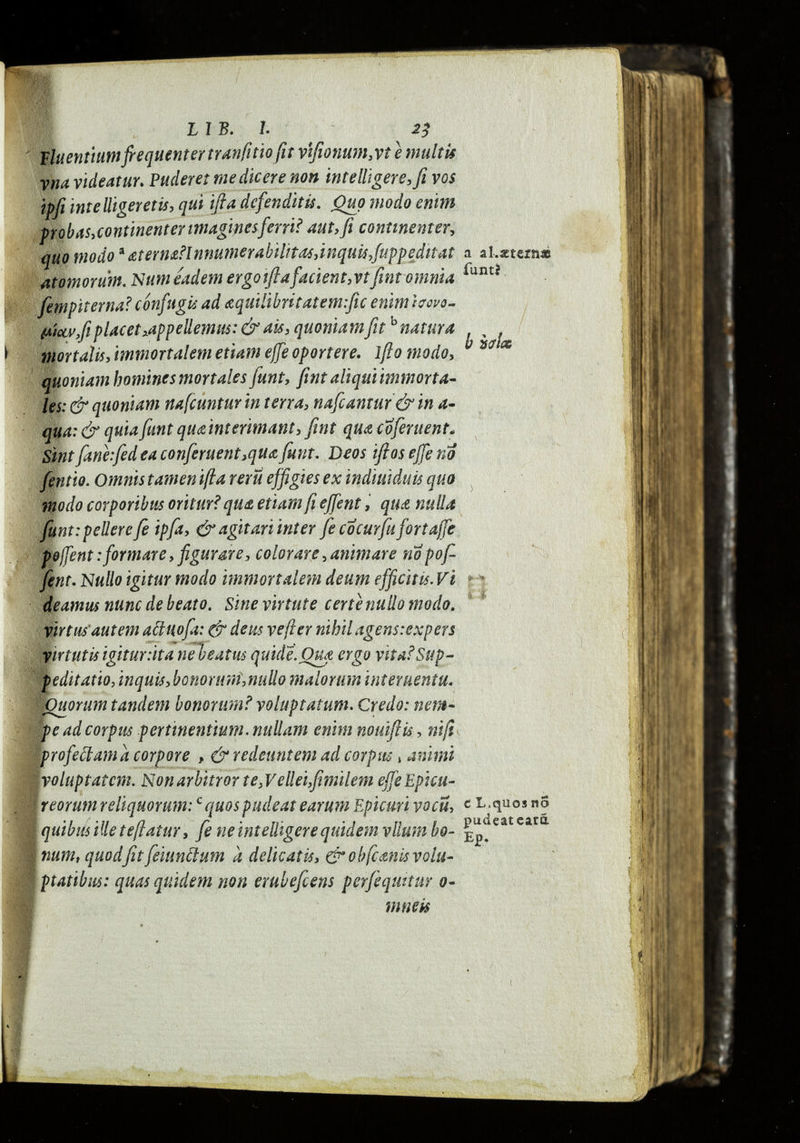 LIB. I. 23
Fluentium frequenter tranſitio fit viſionum, vt è multis
vna videatur. Puderet me dicere non intelligere, ſi vos
ipſi intelligeretis, qui iſta defenditis. Quo modo enim
probas, continenter imagines ferri? aut, ſi continenter,
quo modo ᵃ æternæ? Innumerabilitas, inquis, ſuppeditat
atomorum. Num eadem ergo iſta facient, vt ſint omnia
ſempiterna? confugis ad æquilibritatem: ſic enim ἰσονο-
μίαν, ſi placet, appellemus: & ais, quoniam ſit ᵇ natura
mortalis, immortalem etiam eſſe oportere. Iſto modo,
quoniam homines mortales ſunt, ſint aliqui immorta-
les: & quoniam naſcuntur in terra, naſcantur & in a-
qua: & quia ſunt quæ interimant, ſint quæ cōſeruent.
Sint ſanè: ſed ea conſeruent, quæ ſunt. Deos iſtos eſſe nō
ſentio. Omnis tamen iſta rerū effigies ex indiuiduis quo
modo corporibus oritur? quæ etiam ſi eſſent, quæ nulla
ſunt: pellere ſe ipſa, & agitari inter ſe cōcurſu fortaſſe
poſſent: formare, figurare, colorare, animare nō poſ-
ſent. Nullo igitur modo immortalem deum efficitis. Vi
deamus nunc de beato. Sine virtute certè nullo modo.
virtus autem actuoſa: & deus veſter nihil agens: expers
virtutis igitur: ita ne beatus quidē. Quæ ergo vita? Sup-
peditatio, inquis, bonorum, nullo malorum interuentu.
Quorum tandem bonorum? voluptatum. Credo: nem-
pe ad corpus pertinentium. nullam enim nouiſtis, niſi
profectam à corpore, & redeuntem ad corpus, animi
voluptatem. Non arbitror te, Vellei, ſimilem eſſe Epicu-
reorum reliquorum: ᶜ quos pudeat earum Epicuri vocū,
quibus ille teſtatur, ſe ne intelligere quidem vllum bo-
num, quod ſit ſeiunctum à delicatis, & obſcænis volu-
ptatibus: quas quidem non erubeſcens perſequitur o-
mneis
a al. æternæ
ſunt?
b
c L. quos nō
pudeat earū
Ep.